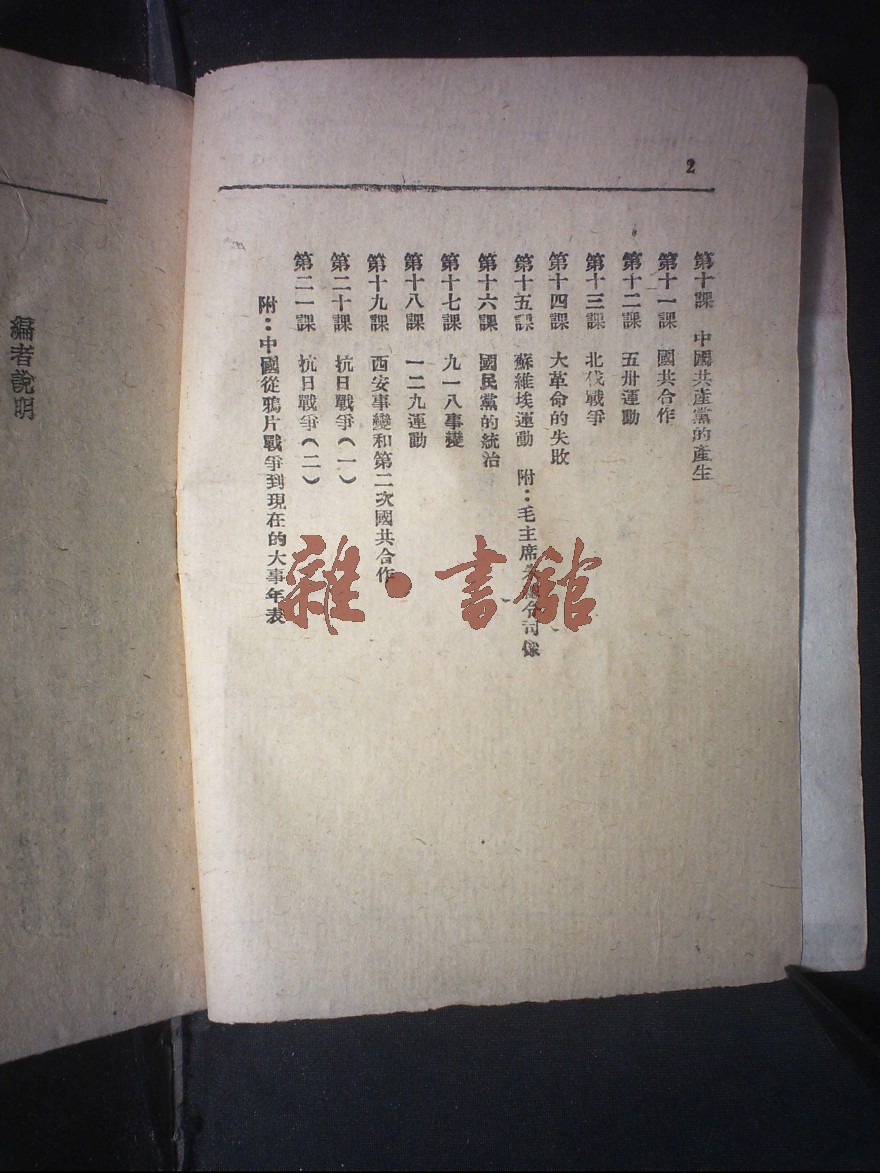 2
第十課　中國共產黨的產生
第十一課　國共合作
第十二課　五卅運動
第十三課　北伐戰爭
第十四課　大革命的失敗
第十五課　蘇維埃運動　附：毛主席朱總令司像
第十六課　國民黨的統治
第十七課　九一八事變
第十八課　一二九運動
第十九課　西安事變和第二次國共合作
第二十課　抗日戰爭（一）
第二一課　抗日戰爭（二）
附：中國從鴉片戰爭到現在的大事年表
編者說明
雜·書館